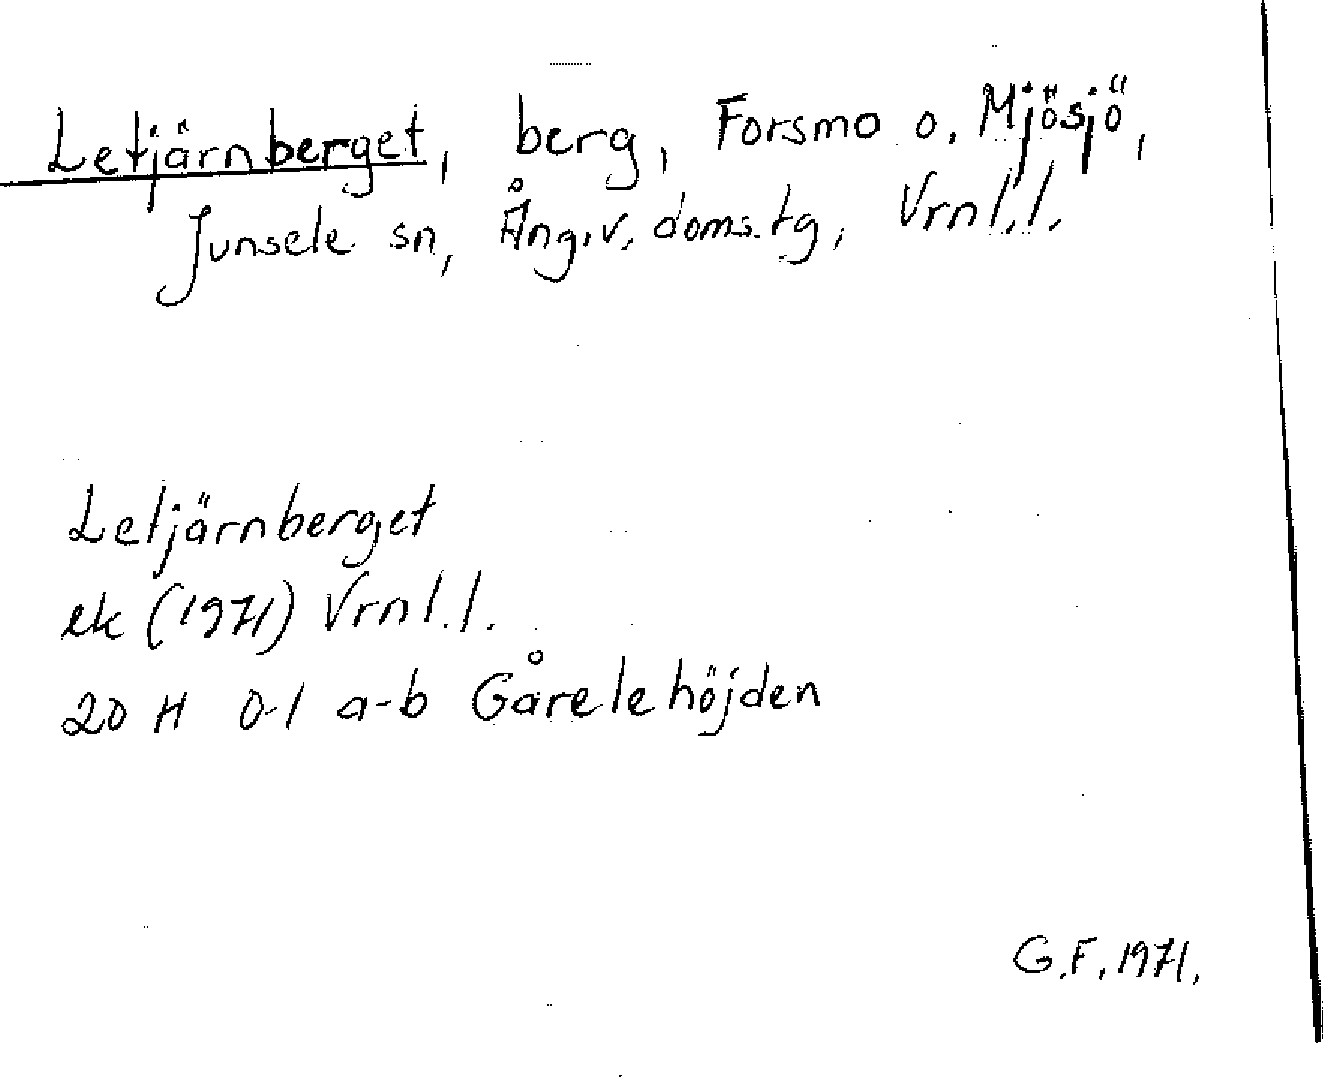 Letjärnberget, berg, Forsmo o. Mjösjö,
Junsele sn, Ång.v. doms.tg, Vrnl.l.
Letjärnberget
ek (1971) Vrnl.l.
20 H 0-1 a-b Gårelehöjden
G.F. 1971.